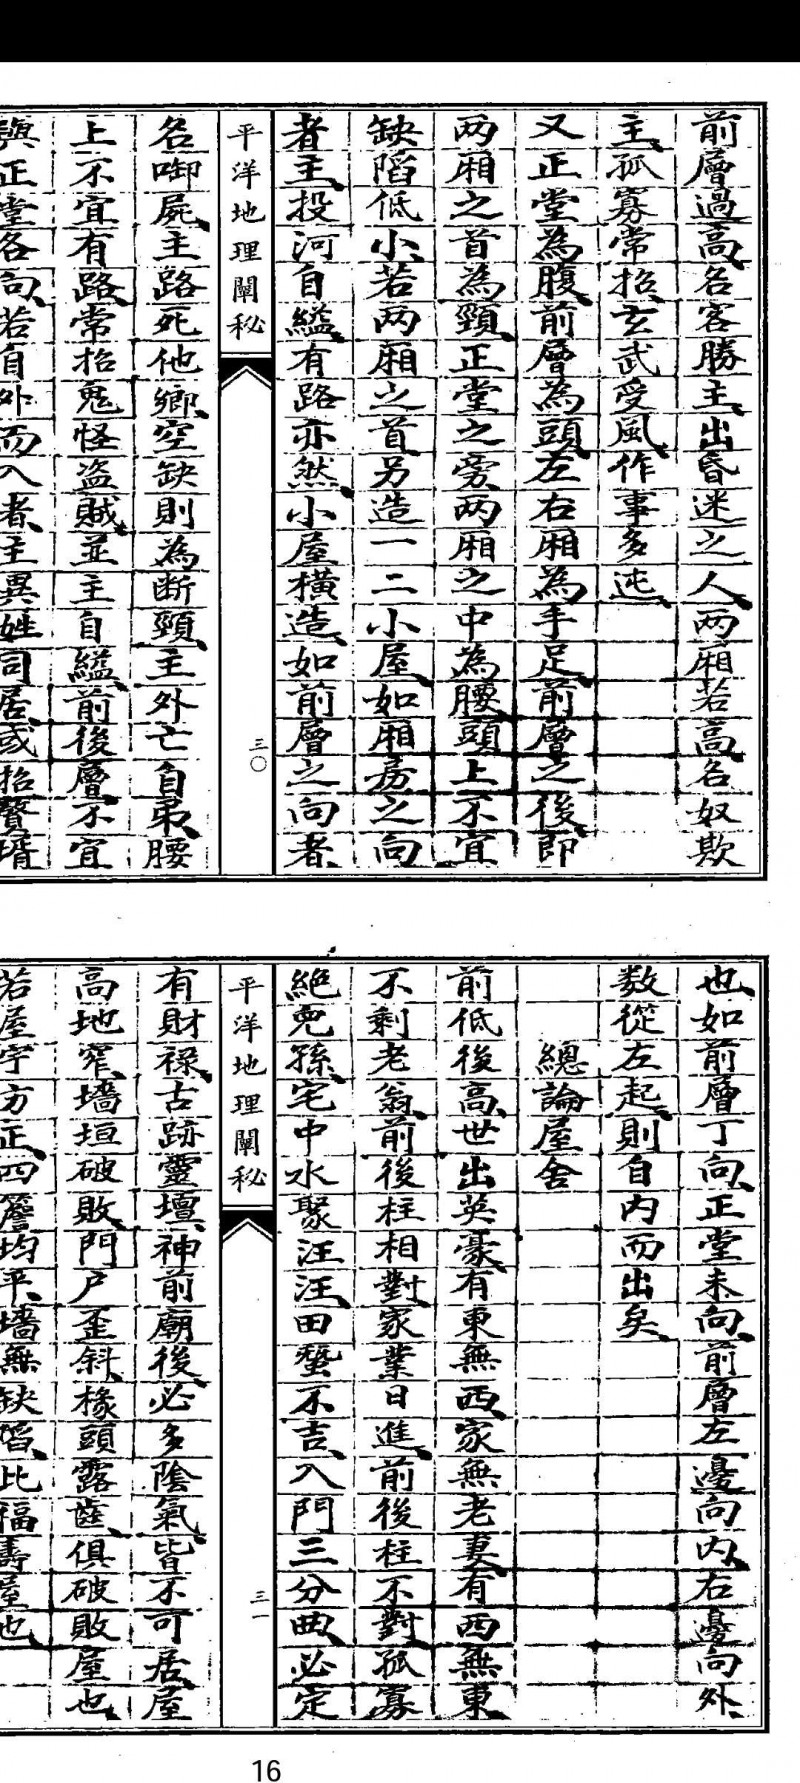 前層過高名客勝主出昏迷之人两廂若高名奴欺
主孤寡常招玄武受風作事多迍
又正堂為腹前層為頭左右廂為手足前層之後即
两廂之首為頸正堂之旁两廂之中為腰頭上不宜
缺陷低小若两廂之首另造一二小屋如廂房之向
者主投河自縊有路亦然小屋橫造如前層之向者
平洋地理闡秘
三〇
名啣屍主路死他鄉空缺則為断頸主外亡自弔腰
上不宜有路常招鬼怪盜賊並主自縊前後層不宜
與正堂各向若自外而入者主異姓同居或招贅壻
也如前層丁向正堂未向前層左邊向内右邊向外
数從左起則自内而出矣
總論屋舍
前低後高世出英豪有東無西家無老妻有西無東
不剩老翁前後柱相對家業日進前後柱不對孤寡
絶兒孫宅中水聚汪汪田蚕不吉入門三分曲必定
平洋地理闡秘
三一
有財祿古跡靈壇神前廟後必多陰氣皆不可居屋
高地窄墻垣破敗門户歪斜椽頭露齒俱破敗屋也
若屋宇方正四簷均平墻無缺陷此福壽屋也
16